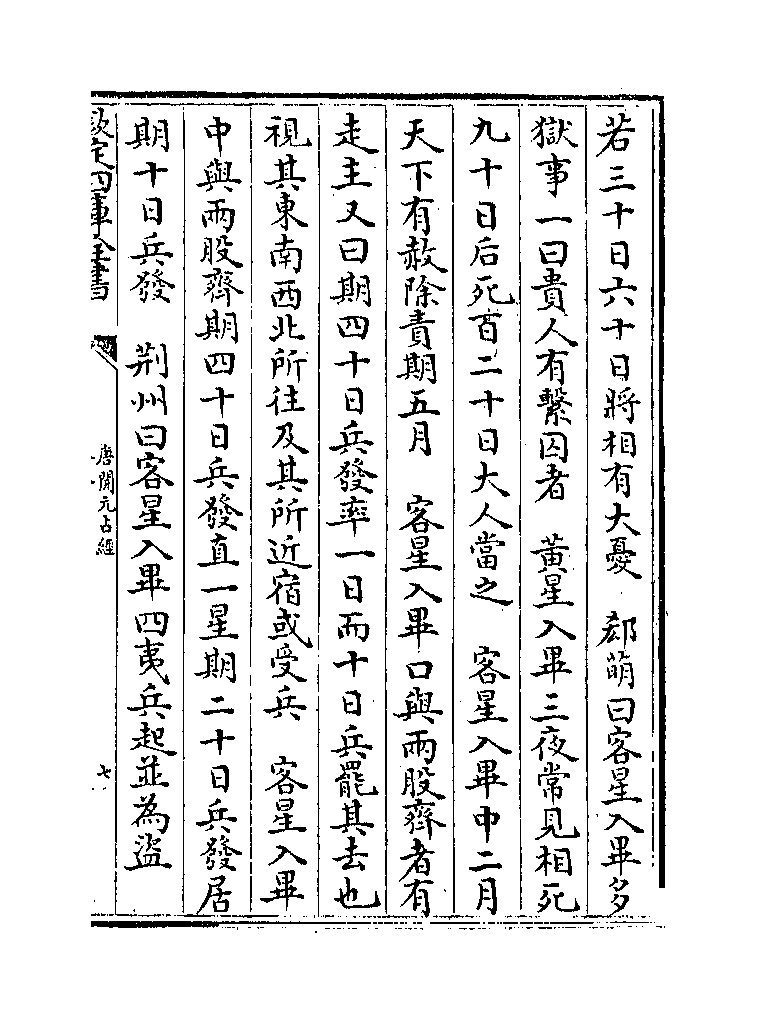 若三十日六十日將相有大憂　郄萌曰客星入畢多
獄事一曰貴人有繫囚者　黃星入畢三夜常見相死
九十日后死百二十日大人當之　客星入畢中二月
天下有赦除責期五月　客星入畢口與兩股齊者有
走主又曰期四十日兵發率一日而十日兵罷其去也
視其東南西北所往及其所近宿或受兵　客星入畢
中與兩股齊期四十日兵發直一星期二十日兵發居
期十日兵發　荆州曰客星入畢四夷兵起並為盜
欽定四庫全書
唐開元占經
七